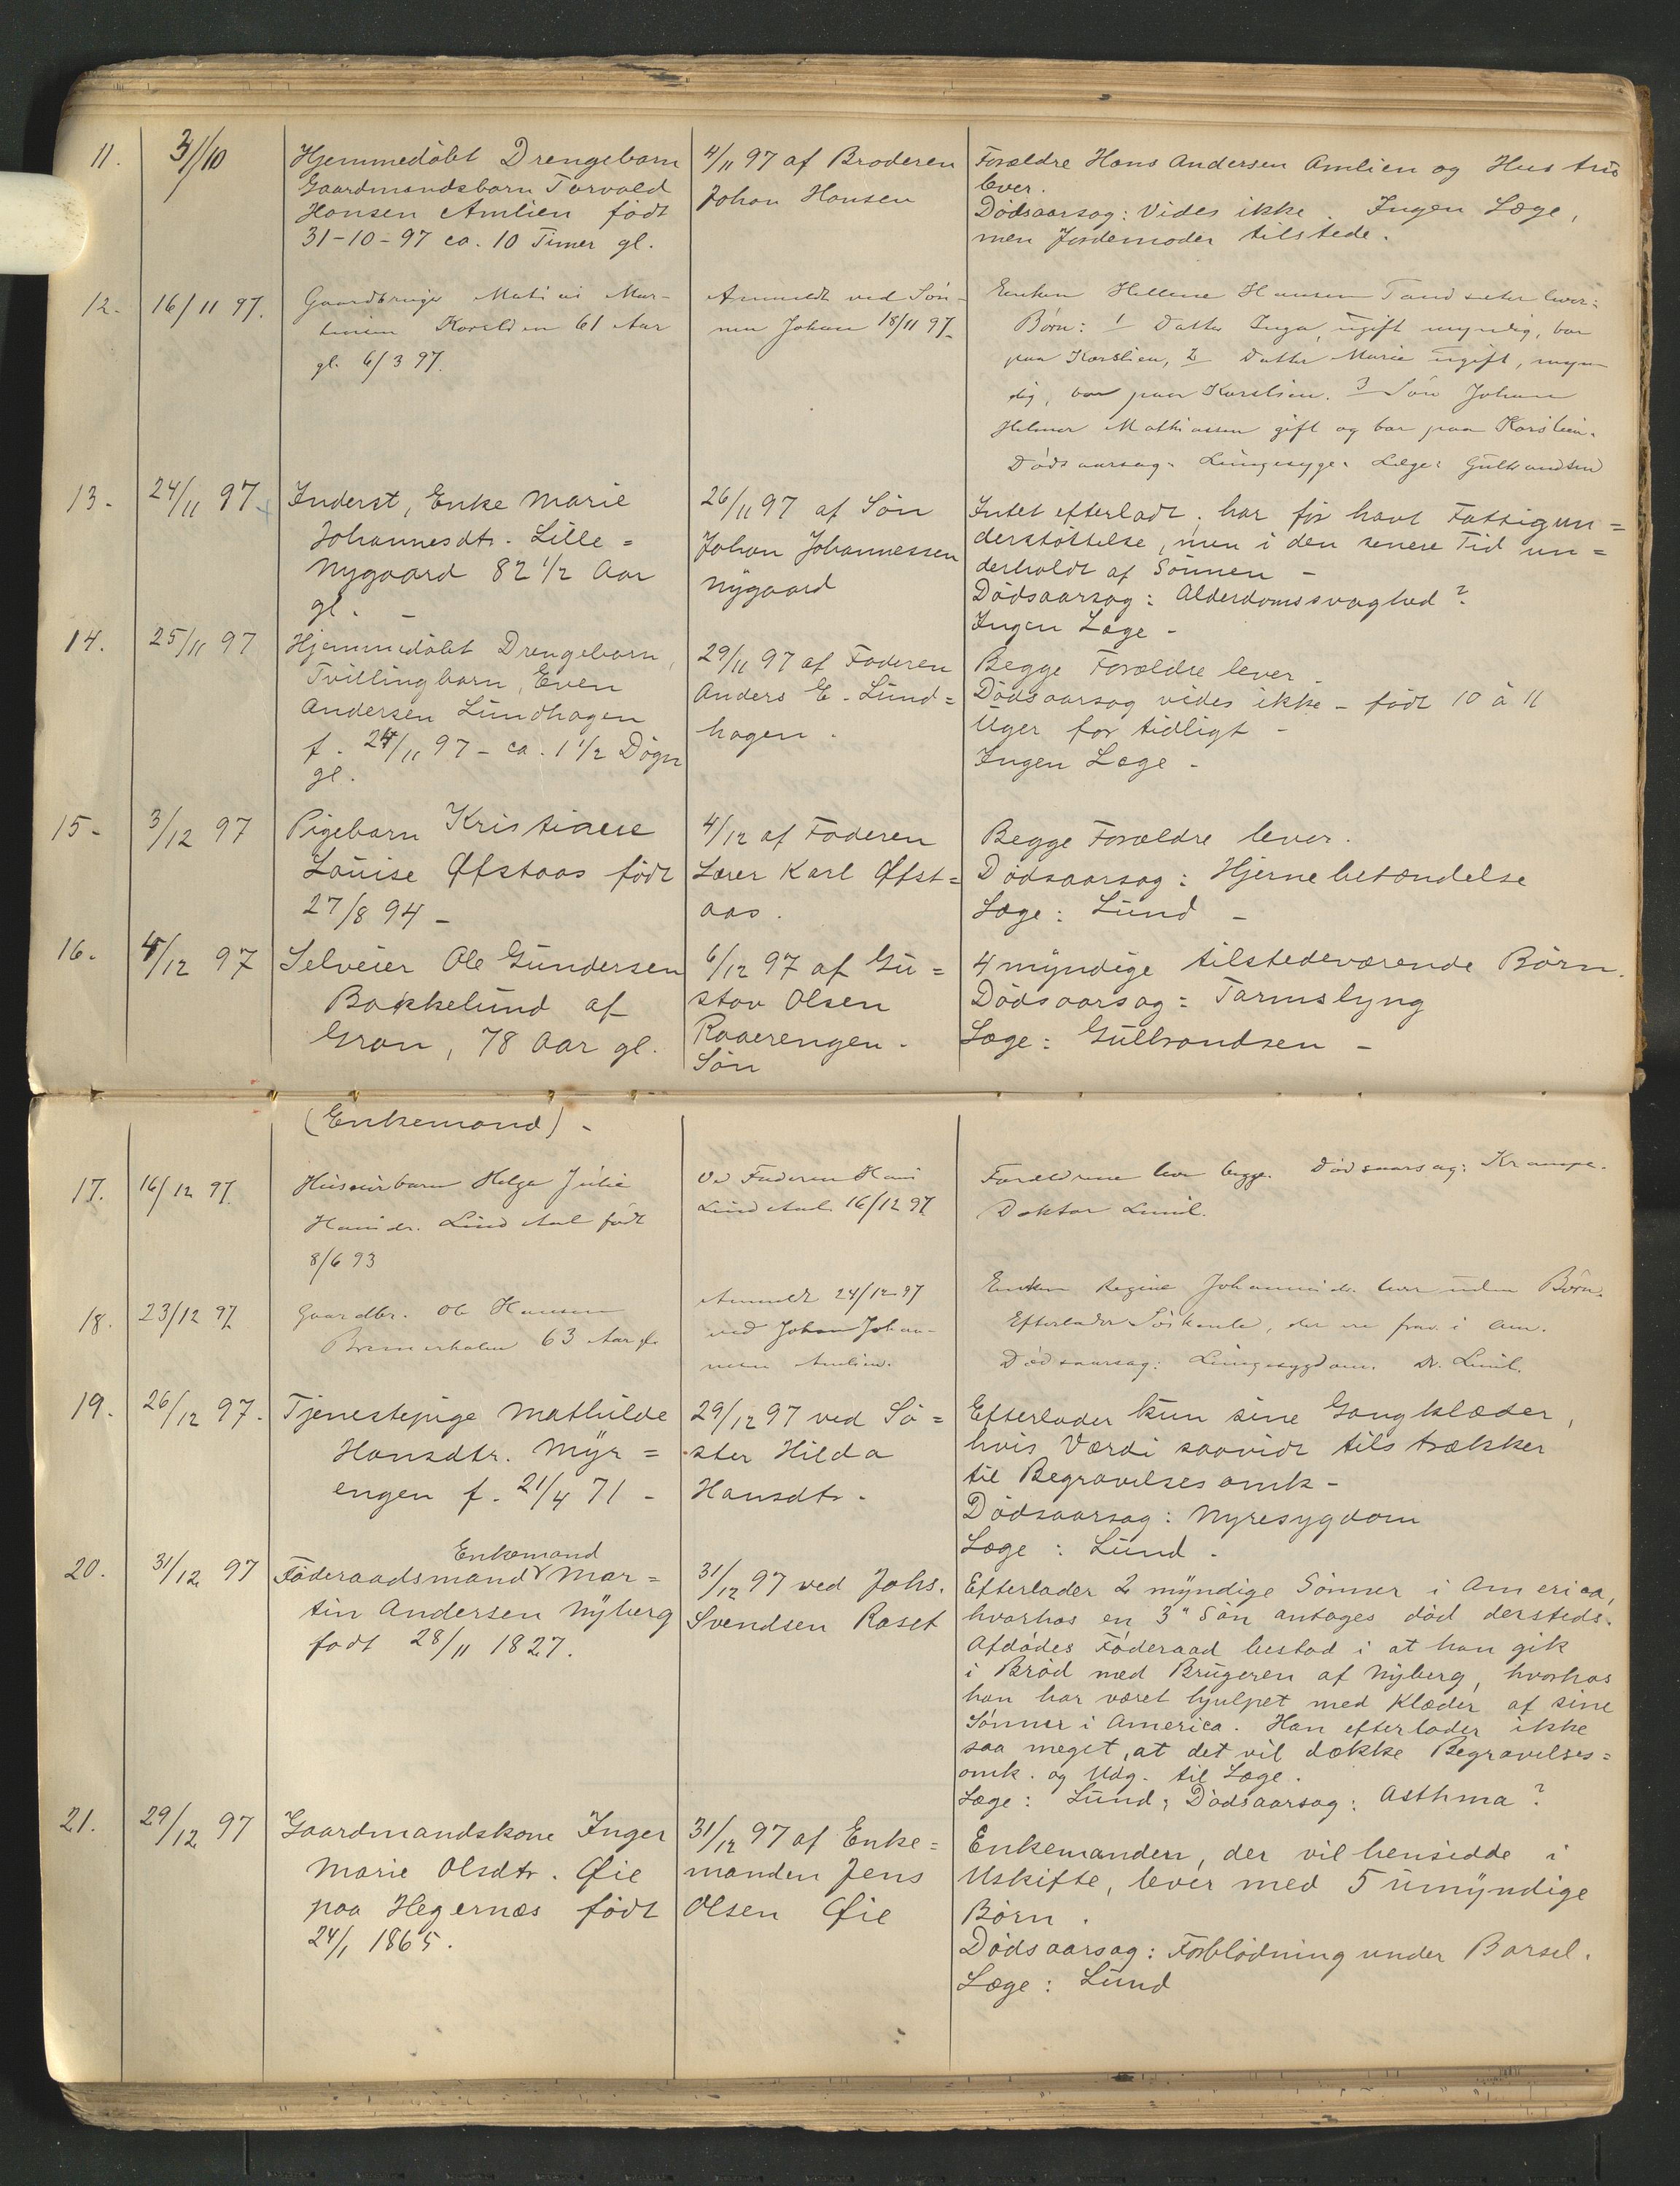 11. 31/10 Hjemmedøbt Drengebarn 4/11 97 af Broderen Forældre Hans Andersen Amlien og Hustru
Gaardmandsbarn Torvald Johan Hansen lever.
Hansen Amlien født Dødsaarsag: Vides ikke. Ingen Læge,
31-10-97 ca. 10 Timer gl. men Jordemoder tilstede.
12. 16/11 97. Gaardbruger Matias Mar- Anmeldt ved Søn- Enken Hellene Hansen lever:
tinsen 61 Aar nen Johan 18/11 97. Børn: 1 Datter Inga, ugift myndig, bor
gl. 6/3 97. paa Korslien, 2 Datter Marie ugift, myn-
dig, bor paa Korslien. 3 Søn Johan
Helmer Mathiassen gift og bor paa Korslien.
Dødsaarsag: Lungesyge. Læge: Gulbrandsen
13. 24/11 97. Inderst, Enke Marie 26/11 97 af Søn Intet efterladt, har før havt Fattigun=
Johannesdtr. Lille= Johan Johannessen derstøttelse, men i den senere Tid un=
Nygaard 82 1/2 Aar Nygaard derholdt af Sønnen -
gl. - Dødsaarsag: Alderdomssvaghed?
Ingen Læge -
14. 25/11 97 Hjemmedøbt Drengebarn, 29/11 97 af Faderen Begge Forældre lever -
Tvillingbarn, Even Anders E. Lund= Dødsaarsag vides ikke - født 10 à 11
Andersen Lundhagen hagen. Uger for tidligt -
f. 24/11 97 - ca. 1 1/2 Døgn Ingen Læge -
gl.
15- 3/12 97 Pigebarn Kristiane 4/12 af Faderen Begge Forældre lever.
Louise Øfstaas født Lærer Karl Øfst= Dødsaarsag: Hjernebetændelse
27/8 94 - aas. Læge: Lund -
16. 4/12 97 Selveier Ole Gundersen 6/12 97 af Gu= 4 myndige tilstedeværende Børn.
Bakkelund af stav Olsen Dødsaarsag: Tarmslyng
Gran, 78 Aar gl. Raaerengen. Læge: Gulbrandsen -
Søn
(Enkemand) -
17. 16/12 97. Helga Julie Ved Faderen Hans Forældrene lever begge. Dødsaarsag: Krampe.
Hansdr. født 16/12 97 Doktor Lund.
8/6 93
18. 23/12 97 Gaardbr. Ole Hansen Anmeldt 24/12-97 Enken Regine Johannesdr. lever uden Børn.
63 Aar gl. ved Johan Johan- Efterlader Søskende, der er frav. i Am.
nesen Amlien. Dødsaarsag: Lungesygdom. Dr. Lund.
19. 26/12 97. Tjenestepige Mathilde 29/12 97 ved Sø= Efterlader kun sine Gangklæder,
Hansdtr. Myr= ster Hilda hvis Værdi saavidt tilstrækker
engen f. 21/4 71 - Hansdtr. til Begravelsesomk -
Dødsaarsag: Nyresygdom
Læge: Lund.
Enkemand
20. 31/12 97 Føderaadsmand Mar= 31/12 97 ved Johs. Efterlader 2 myndige Sønner i America,
tin Andersen Nyberg Svendsen Raset hvorhos en 3" Søn antages død dersteds.
født 28/11 1827. Afdødes Føderaad bestod i at han gik
i Brød med Brugeren af Nyberg, hvorhos
han har været hjulpet med Klæder af sine
Sønner i America. Han efterlader ikke
saa meget, at det vil dække Begravelses=
omk. og Udg. til Læge.
Læge: Lund; Dødsaarsag: Asthma?
21. 29/12 97 Gaardmandskone Inger 31/12 97 af Enke= Enkemanden, der vil hensidde i
Marie Olsdtr. Øie manden Jens Uskifte, lever med 5 umyndige
paa Hegernæs født Olsen Øie Børn.
24/1 1865. Dødsaarsag: Forblødning under Barsel.
Læge: Lund